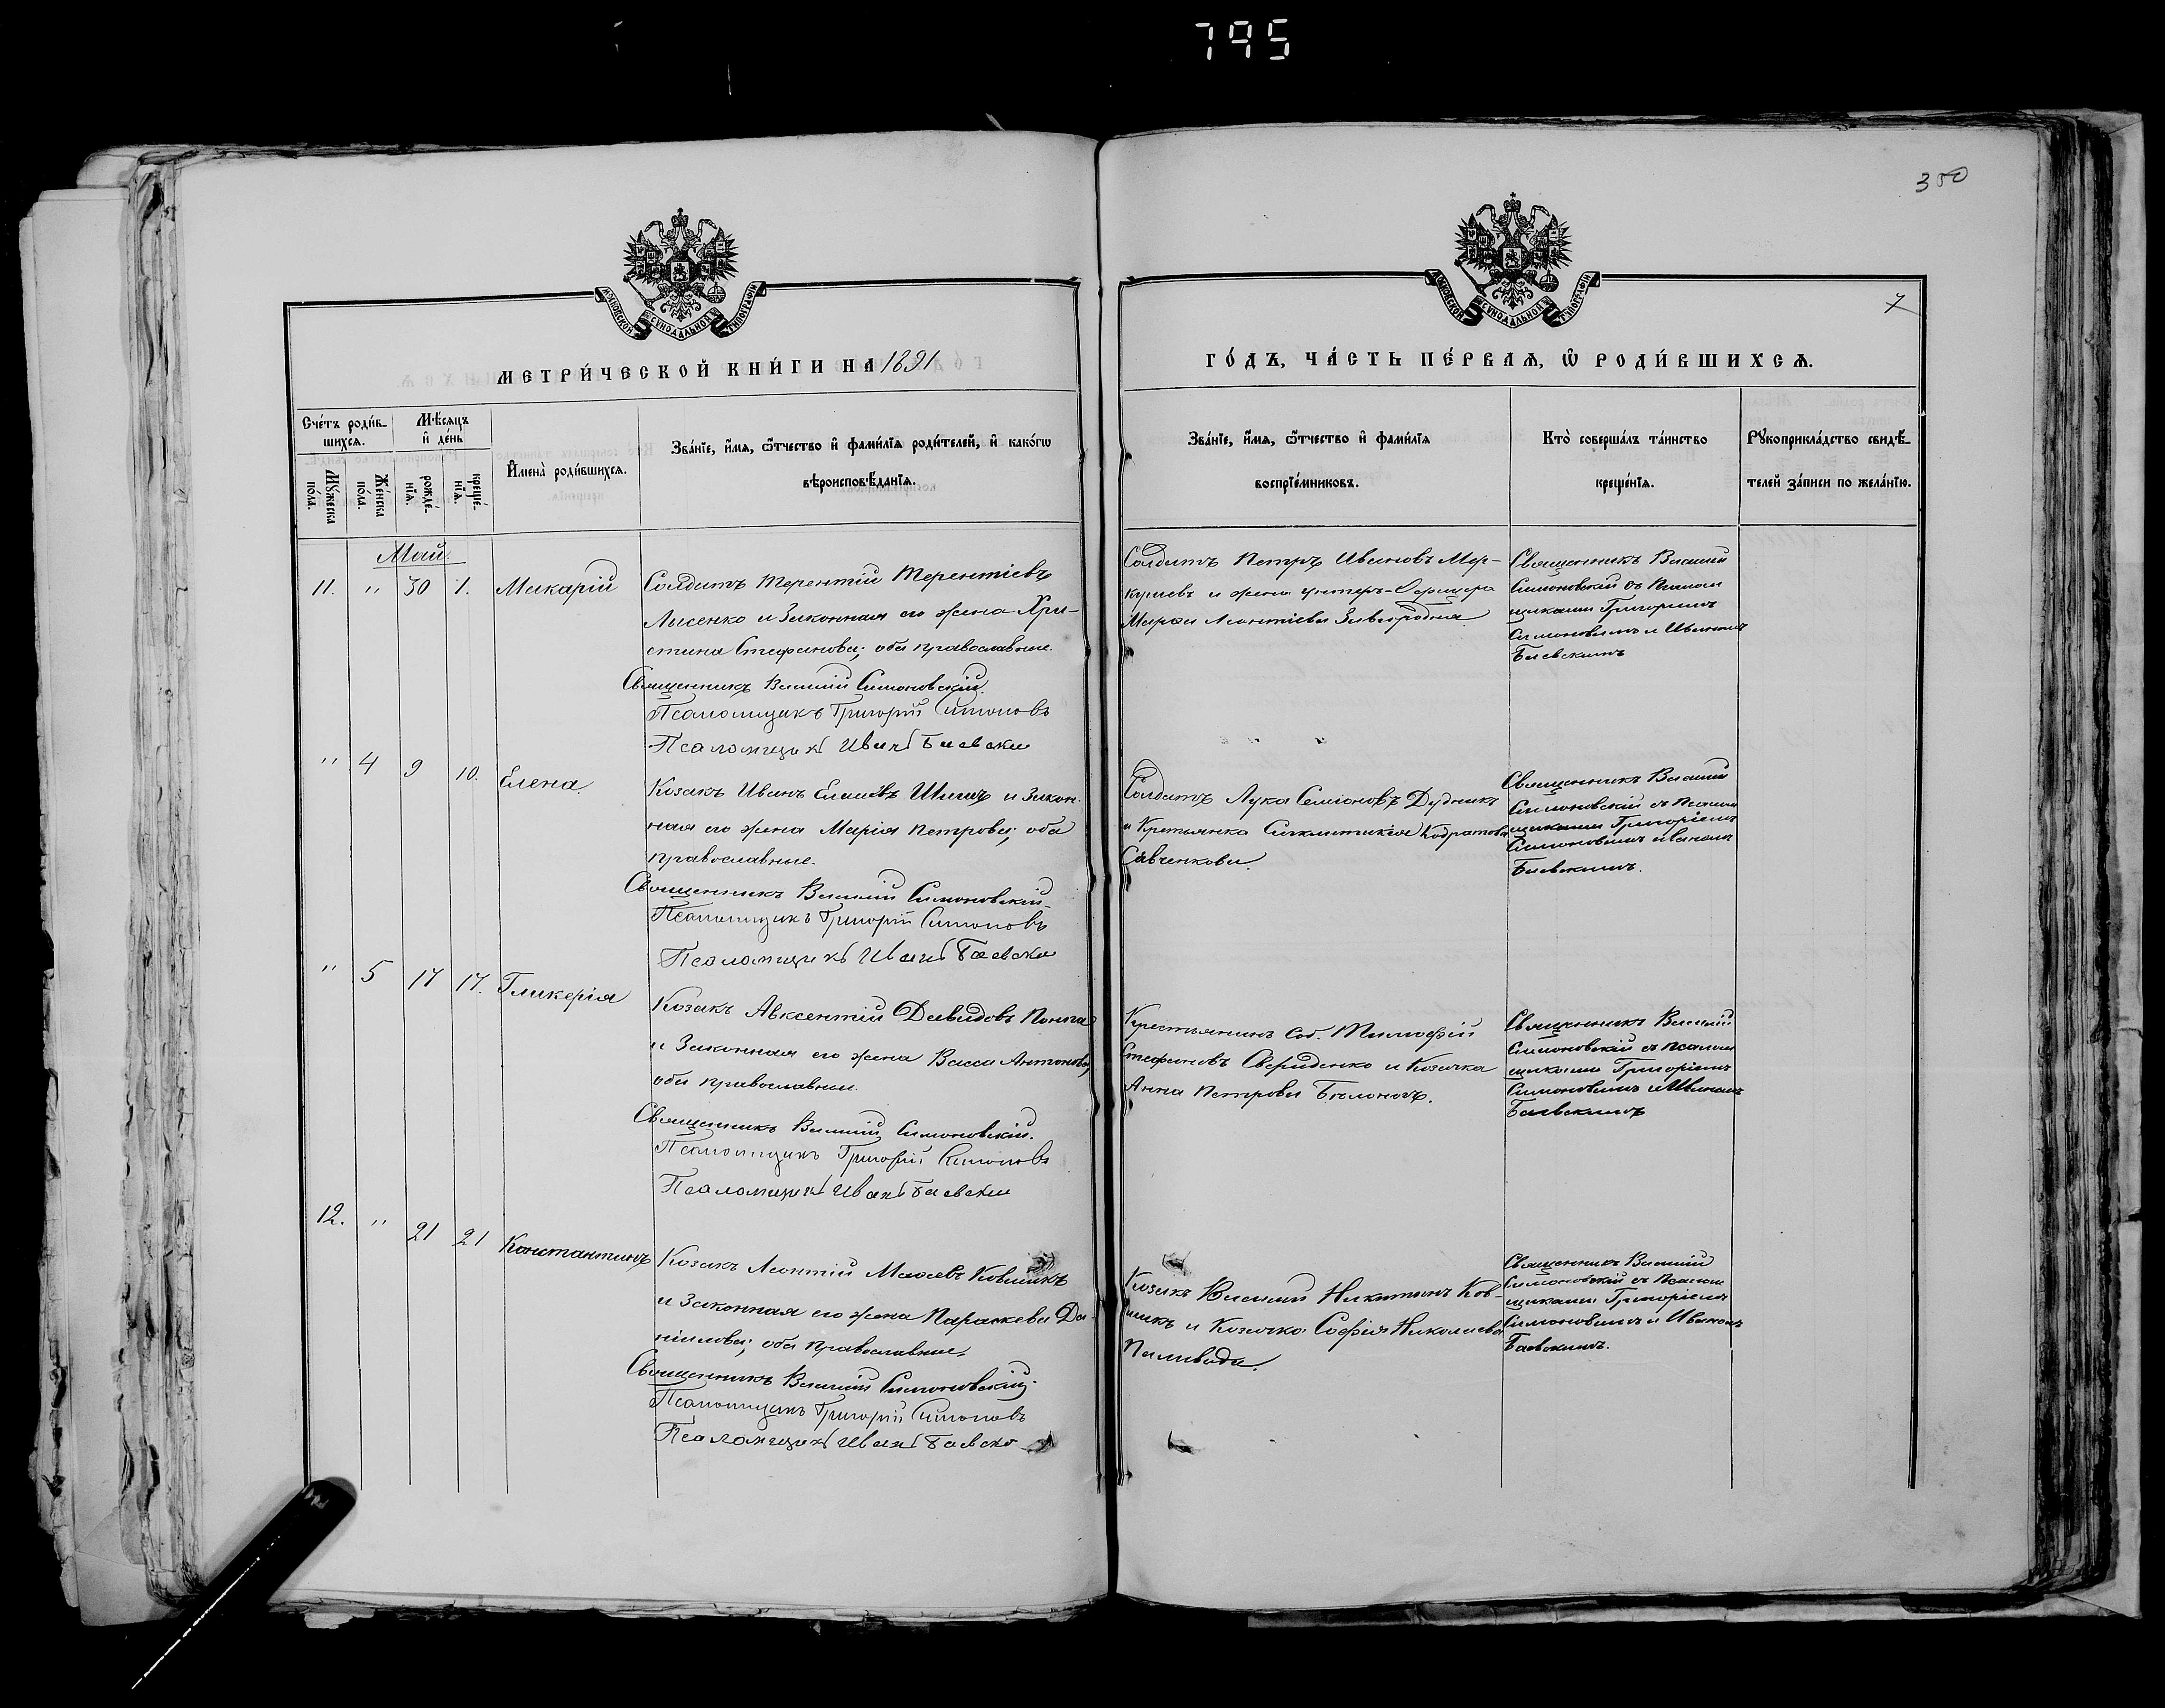 795
350
7
МОСКОВСКОЙ СѴНОДАЛЬНОЙ ТИПОГРАФІИ
МЕТРИ́ЧЕСКОЙ КНИ́ГИ НА 1891
МОСКОВСКОЙ СѴНОДАЛЬНОЙ ТИПОГРАФІИ
ГО́ДЪ, ЧА́СТЬ ПЕ́РВАѦ, Ѿ РОДИ́ВШИХСѦ.
Сче́тъ роди́в-
шихся.
Мѣ́сяцъ
и де́нь
Мꙋ́жеска по́ла.
Же́нска по́ла.
рожде́-
нїя.
креще́-
нїя.
Имена̀ роди́вшихся.
Зва́нїе, и́мя, ѻ́тчество и фами́лїя роди́телей, и како́гѡ
вѣроисповѣ́данїя.
Зва́нїе, и́мя, ѻ́тчество и фами́лїя
воспрїе́мниковъ.
Кто̀ соверша́лъ та́инство
креще́нїя.
Рꙋкоприкла́дство свидѣ́-
телей за́писи по жела́нїю.
Май.
11. " 30 1. Макарій
Солдатъ Терентій Терентіевъ
Лысенко и Законная его жена Хри-
стина Стефанова; оба православные.
Священникъ Василій Симоновскій.
Псаломщикъ Григорій Симоновъ
Псаломщикъ Иванъ Баевски
Солдатъ Петръ Ивановъ Мер-
кушевъ и жена унтеръ-Офицера
Марѳа Леонтіева Завгородняя.
Священникъ Василій
Симоновскій съ Псалом
щиками Григоріемъ
Симоновымъ и Иваномъ
Баевскимъ
" 4 9 10. Елена.
Козакъ Иванъ и Закон-
ная его жена Марія Петрова; оба
православные.
Священникъ Василій Симоновскій.
Псаломщикъ Григорій Симоновъ
Псаломщикъ Иванъ Баевски
Солдатъ Лука Семіоновъ Дудникъ
и Крестьянка Савченкова.
Священникъ Василій
Симоновскій съ Псалом
щиками Григоріемъ
Симоновымъ и Иваномъ
Баевскимъ.
" 5 17 17. Гликерія
Козакъ Авксентій Давидовъ
и Законная его жена Васса Антонова,
оба православные.
Священникъ Василій Симоновскій.
Псаломщикъ Григорій Симоновъ
Псаломщикъ Иванъ Баевски
Крестьянинъ Соб. Тимофій
Стефановъ Свериденко и Козачка
Анна Петрова
Священникъ Василій
Симоновскій съ Псалом
щиками Григоріемъ
Симоновымъ и Иваномъ
Баевскимъ
12. " 21 21 Константинъ
Козакъ Леонтій Ковшикъ
и Законная его жена Параскева Да-
ніилова; оба Православные.
Священникъ Василій Симоновскій.
Псаломщикъ Григорій Симоновъ
Псаломщикъ Иванъ Баевско
Козакъ Василій Никитинъ Ков-
шикъ и Козачка Софія Николаева
Паливода.
Священникъ Василій
Симоновскій съ Псалом
щиками Григоріемъ
Симоновымъ и Иваномъ
Баевскимъ.